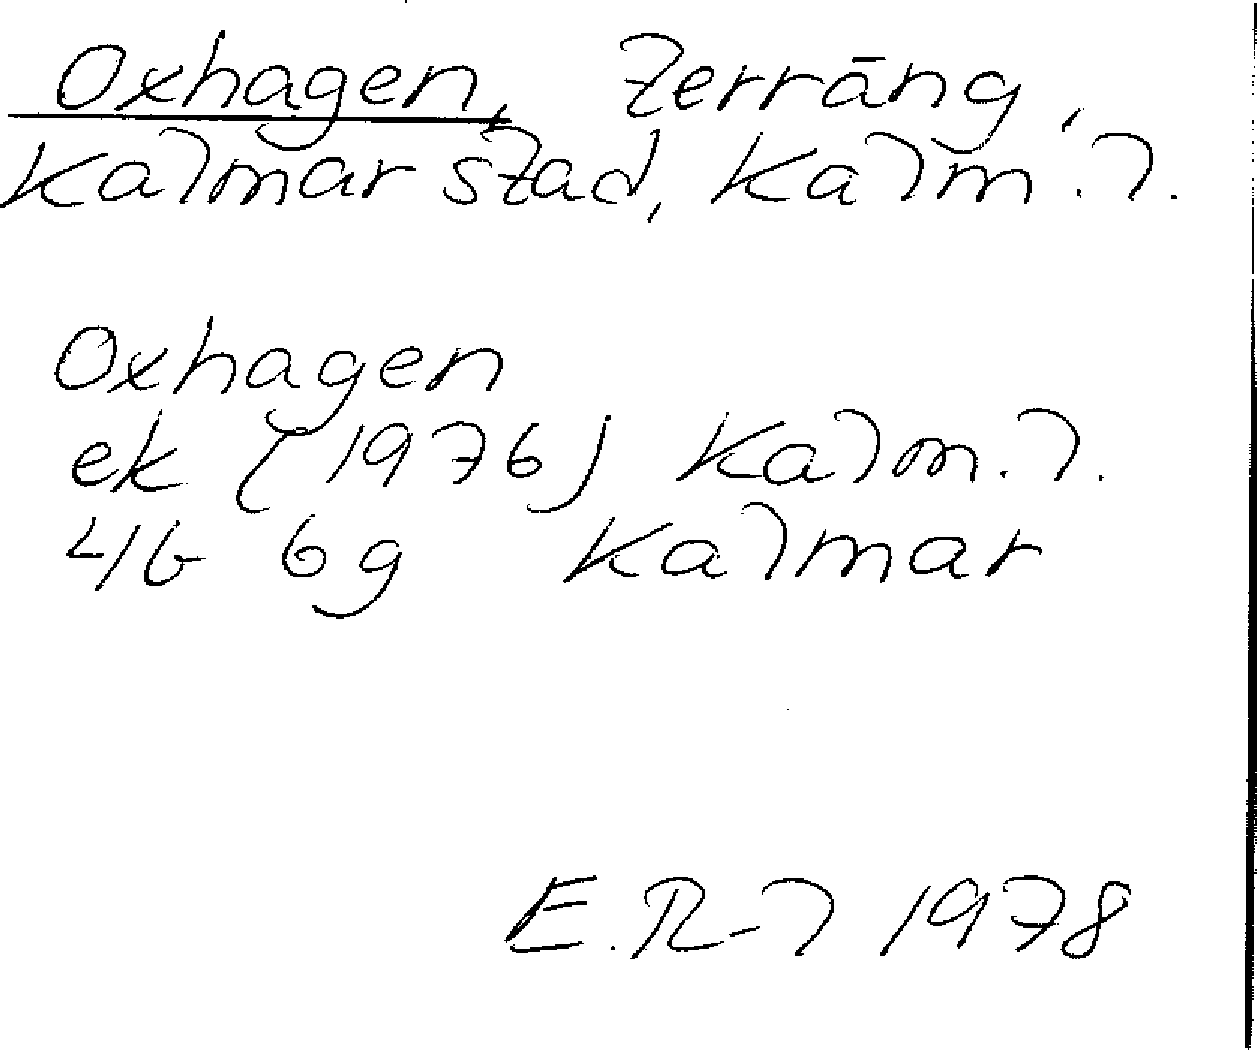 Oxhagen, Terräng,
Kalmar stad, Kalm. l.
Oxhagen
ek (1976) Kalm. l.
4G 6g Kalmar
E. R-l 1978